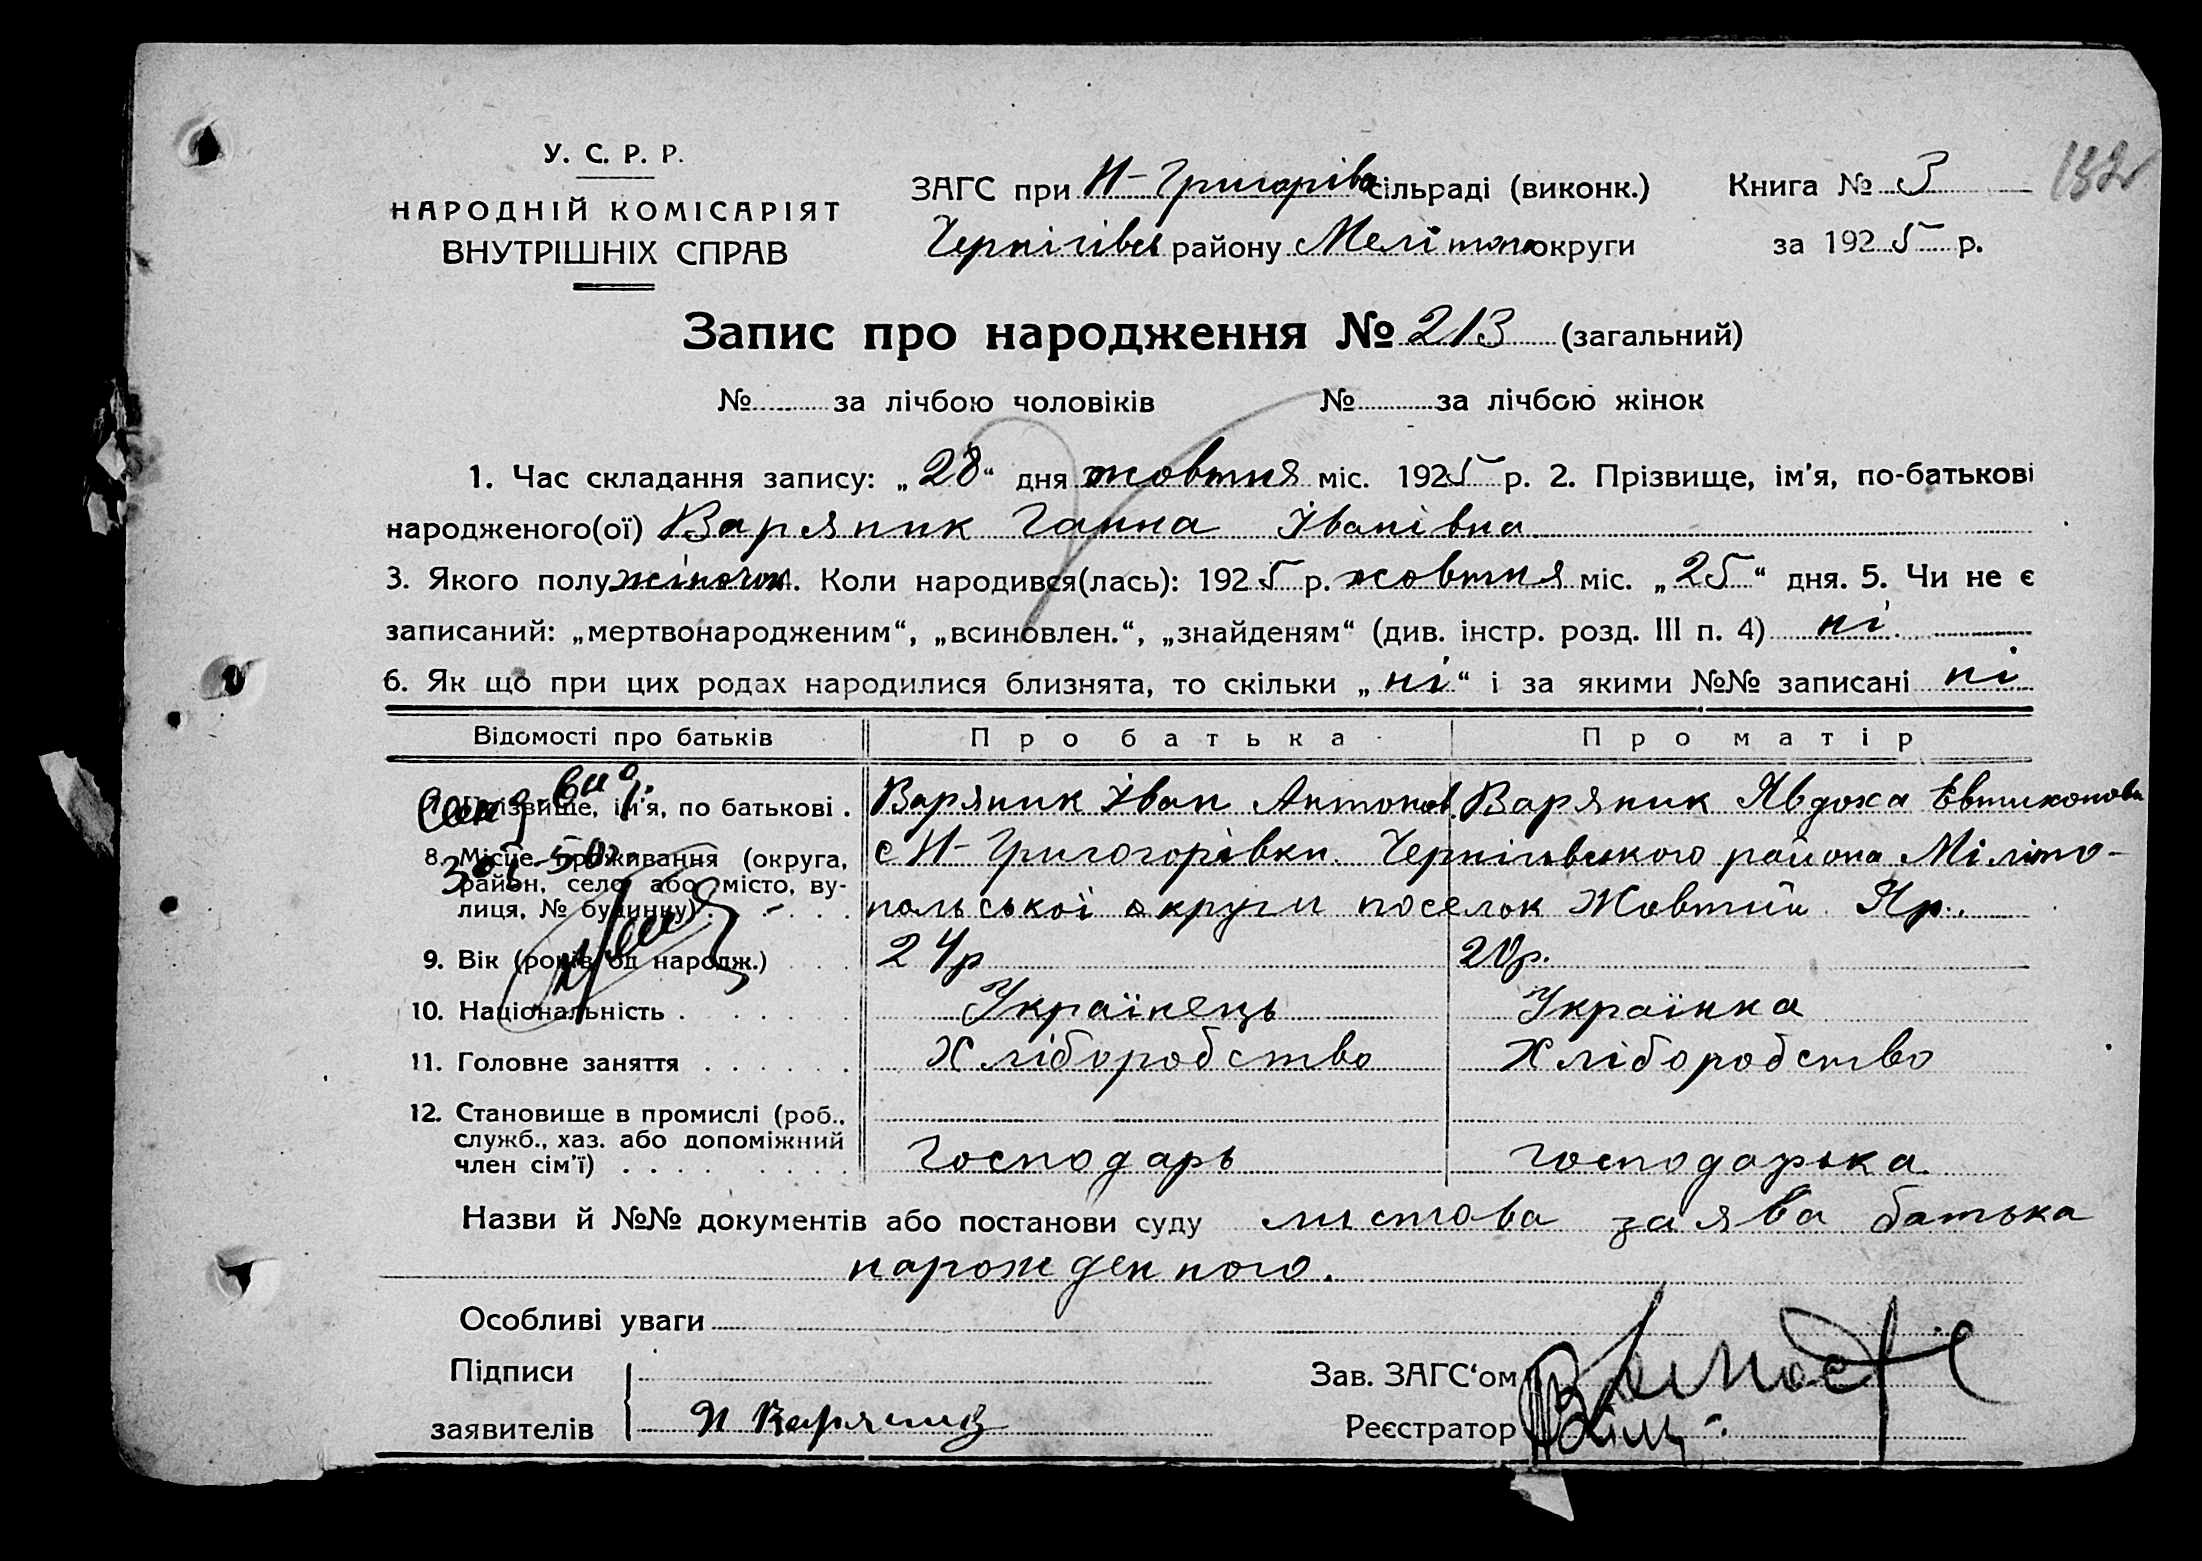 У. С. Р. Р.
НАРОДНІЙ КОМІСАРІЯТ
ВНУТРІШНІХ СПРАВ
ЗАГС при Н-Григорівс сільраді (виконк.)
Чернігівс району Мелітопо округи
Книга № 3
за 1925 р.
132
Запис про народження № 213 (загальний)
№ за лічбою чоловіків № за лічбою жінок
1. Час складання запису: „28“ дня жовтня міс. 1925 р. 2. Прізвище, ім'я, по-батькові
народженого(ої) Варяник Ганна Іванівна
3. Якого полу жіночої. Коли народився(лась): 1925 р. жовтня міс. „25“ дня. 5. Чи не є
записаний: „мертвонародженим“, „всиновлен.“, „знайденям“ (див. інстр. розд. III п. 4) ні.
6. Як що при цих родах народилися близнята, то скільки „ні“ і за якими №№ записані ні
Відомості про батьків Про батька Про матір
7. Прізвище, ім'я, по батькові . Варяник Іван Антонов. Варяник Явдоха Евтихонова
8. Місце проживання (округа, с Н-Григогорівки Чернігивського района Міліто-
район, село або місто, ву-
лиця, № будинку) польської округи поселок Жовтий Яр.
9. Вік (років од народж.) 24р 20р.
10. Національність Українець Українка
11. Головне заняття Хліборобство Хліборобство
12. Становище в промислі (роб.,
служб., хаз. або допоміжний
член сім'ї) Господарь господарька
Назви й №№ документів або постанови суду листова заява батька
нарожденного.
Особливі уваги
Підписи
заявителів И Варяник
Зав. ЗАГС'ом
Реєстратор